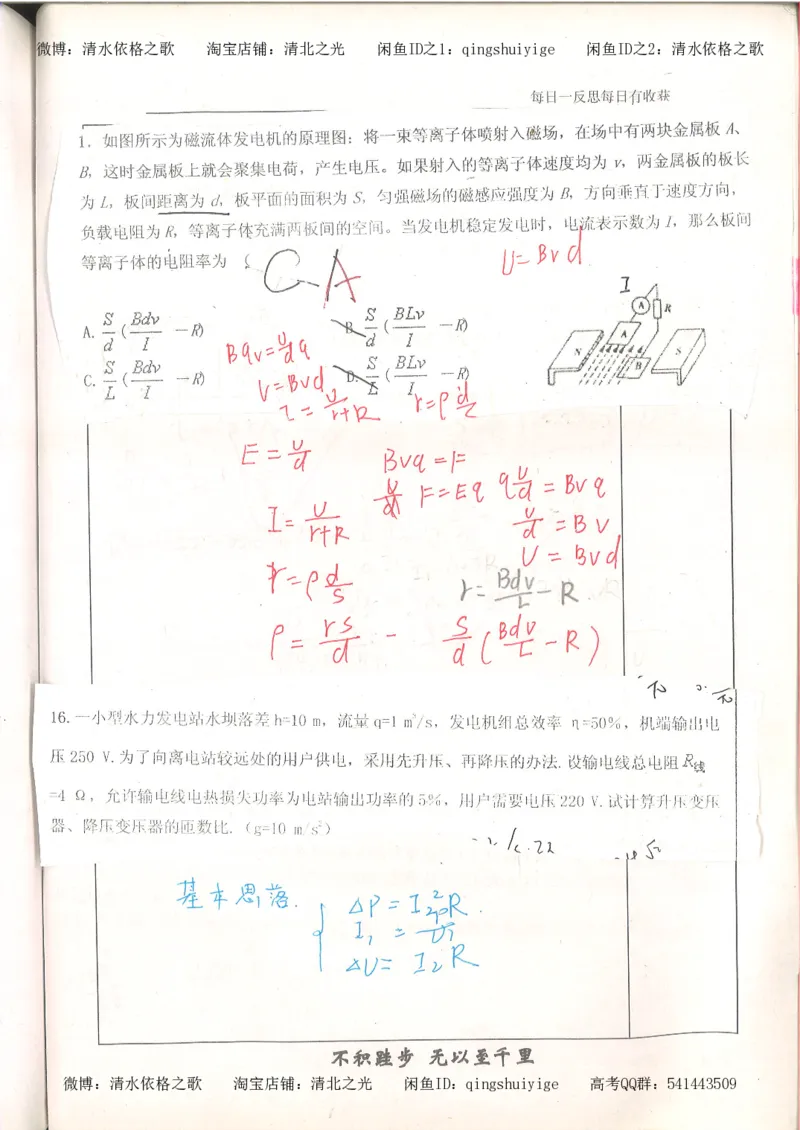 微博：清水依格之歌 淘宝店铺：清北之光 闲鱼ID之1：qingshuiyige 闲鱼ID之2：清水依格之歌
每日一反思每日有收获
1. 如图所示为磁流体发电机的原理图：将一束等离子体喷射入磁场，在场中有两块金属板 A、
B，这时金属板上就会聚集电荷，产生电压。如果射入的等离子体速度均为 v，两金属板的板长
为 L，板间距离为 d，板平面的面积为 S，匀强磁场的磁感应强度为 B，方向垂直于速度方向，
负载电阻为 R，等离子体充满两板间的空间。当发电机稳定发电时，电流表示数为 I，那么板间
等离子体的电阻率为 C A
U=Bvd
I
A
R
A
N
B
S
A. S/d (Bdv/I −R) B. S/d (BLv/I −R)
C. S/L (Bdv/I −R) D. S/L (BLv/I −R)
Bqv=U/d q
U=Bvd
I=U/r+R r=ρ d/L
E=U/d Bvq=F
F=Eq q U/d=Bvq
I=U/r+R U/d=Bv
U=Bvd
r=ρ d/S r=Bdv/I−R
ρ=rS/d − S/d (Bdv/I−R)
16.一小型水力发电站水坝落差 h=10 m，流量 q=1 m³/s，发电机组总效率 η=50%，机端输出电
压 250 V.为了向离电站较远处的用户供电，采用先升压、再降压的办法.设输电线总电阻 R线
=4 Ω，允许输电线电热损失功率为电站输出功率的 5%，用户需要电压 220 V.试计算升压变压
器、降压变压器的匝数比.（g=10 m/s²）
基本思落.
ΔP=I₂²R.
ΔU=I₂R
不积跬步 无以至千里
微博：清水依格之歌 淘宝店铺：清北之光 闲鱼ID：qingshuiyige 高考QQ群：541443509